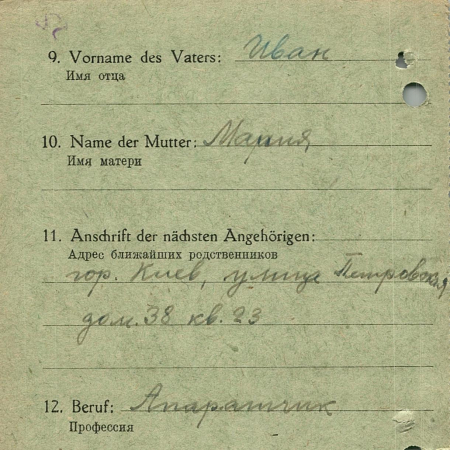 9. Vorname des Vaters: Иван
Имя отца
10. Name der Mutter: Мария
Имя матери
11. Anschrift der nächsten Angehörigen:
Адрес ближайших родственников
гор. Киев, улица Петровская,
дом. 38 кв. 23
12. Beruf: Апаратчик
Профессия